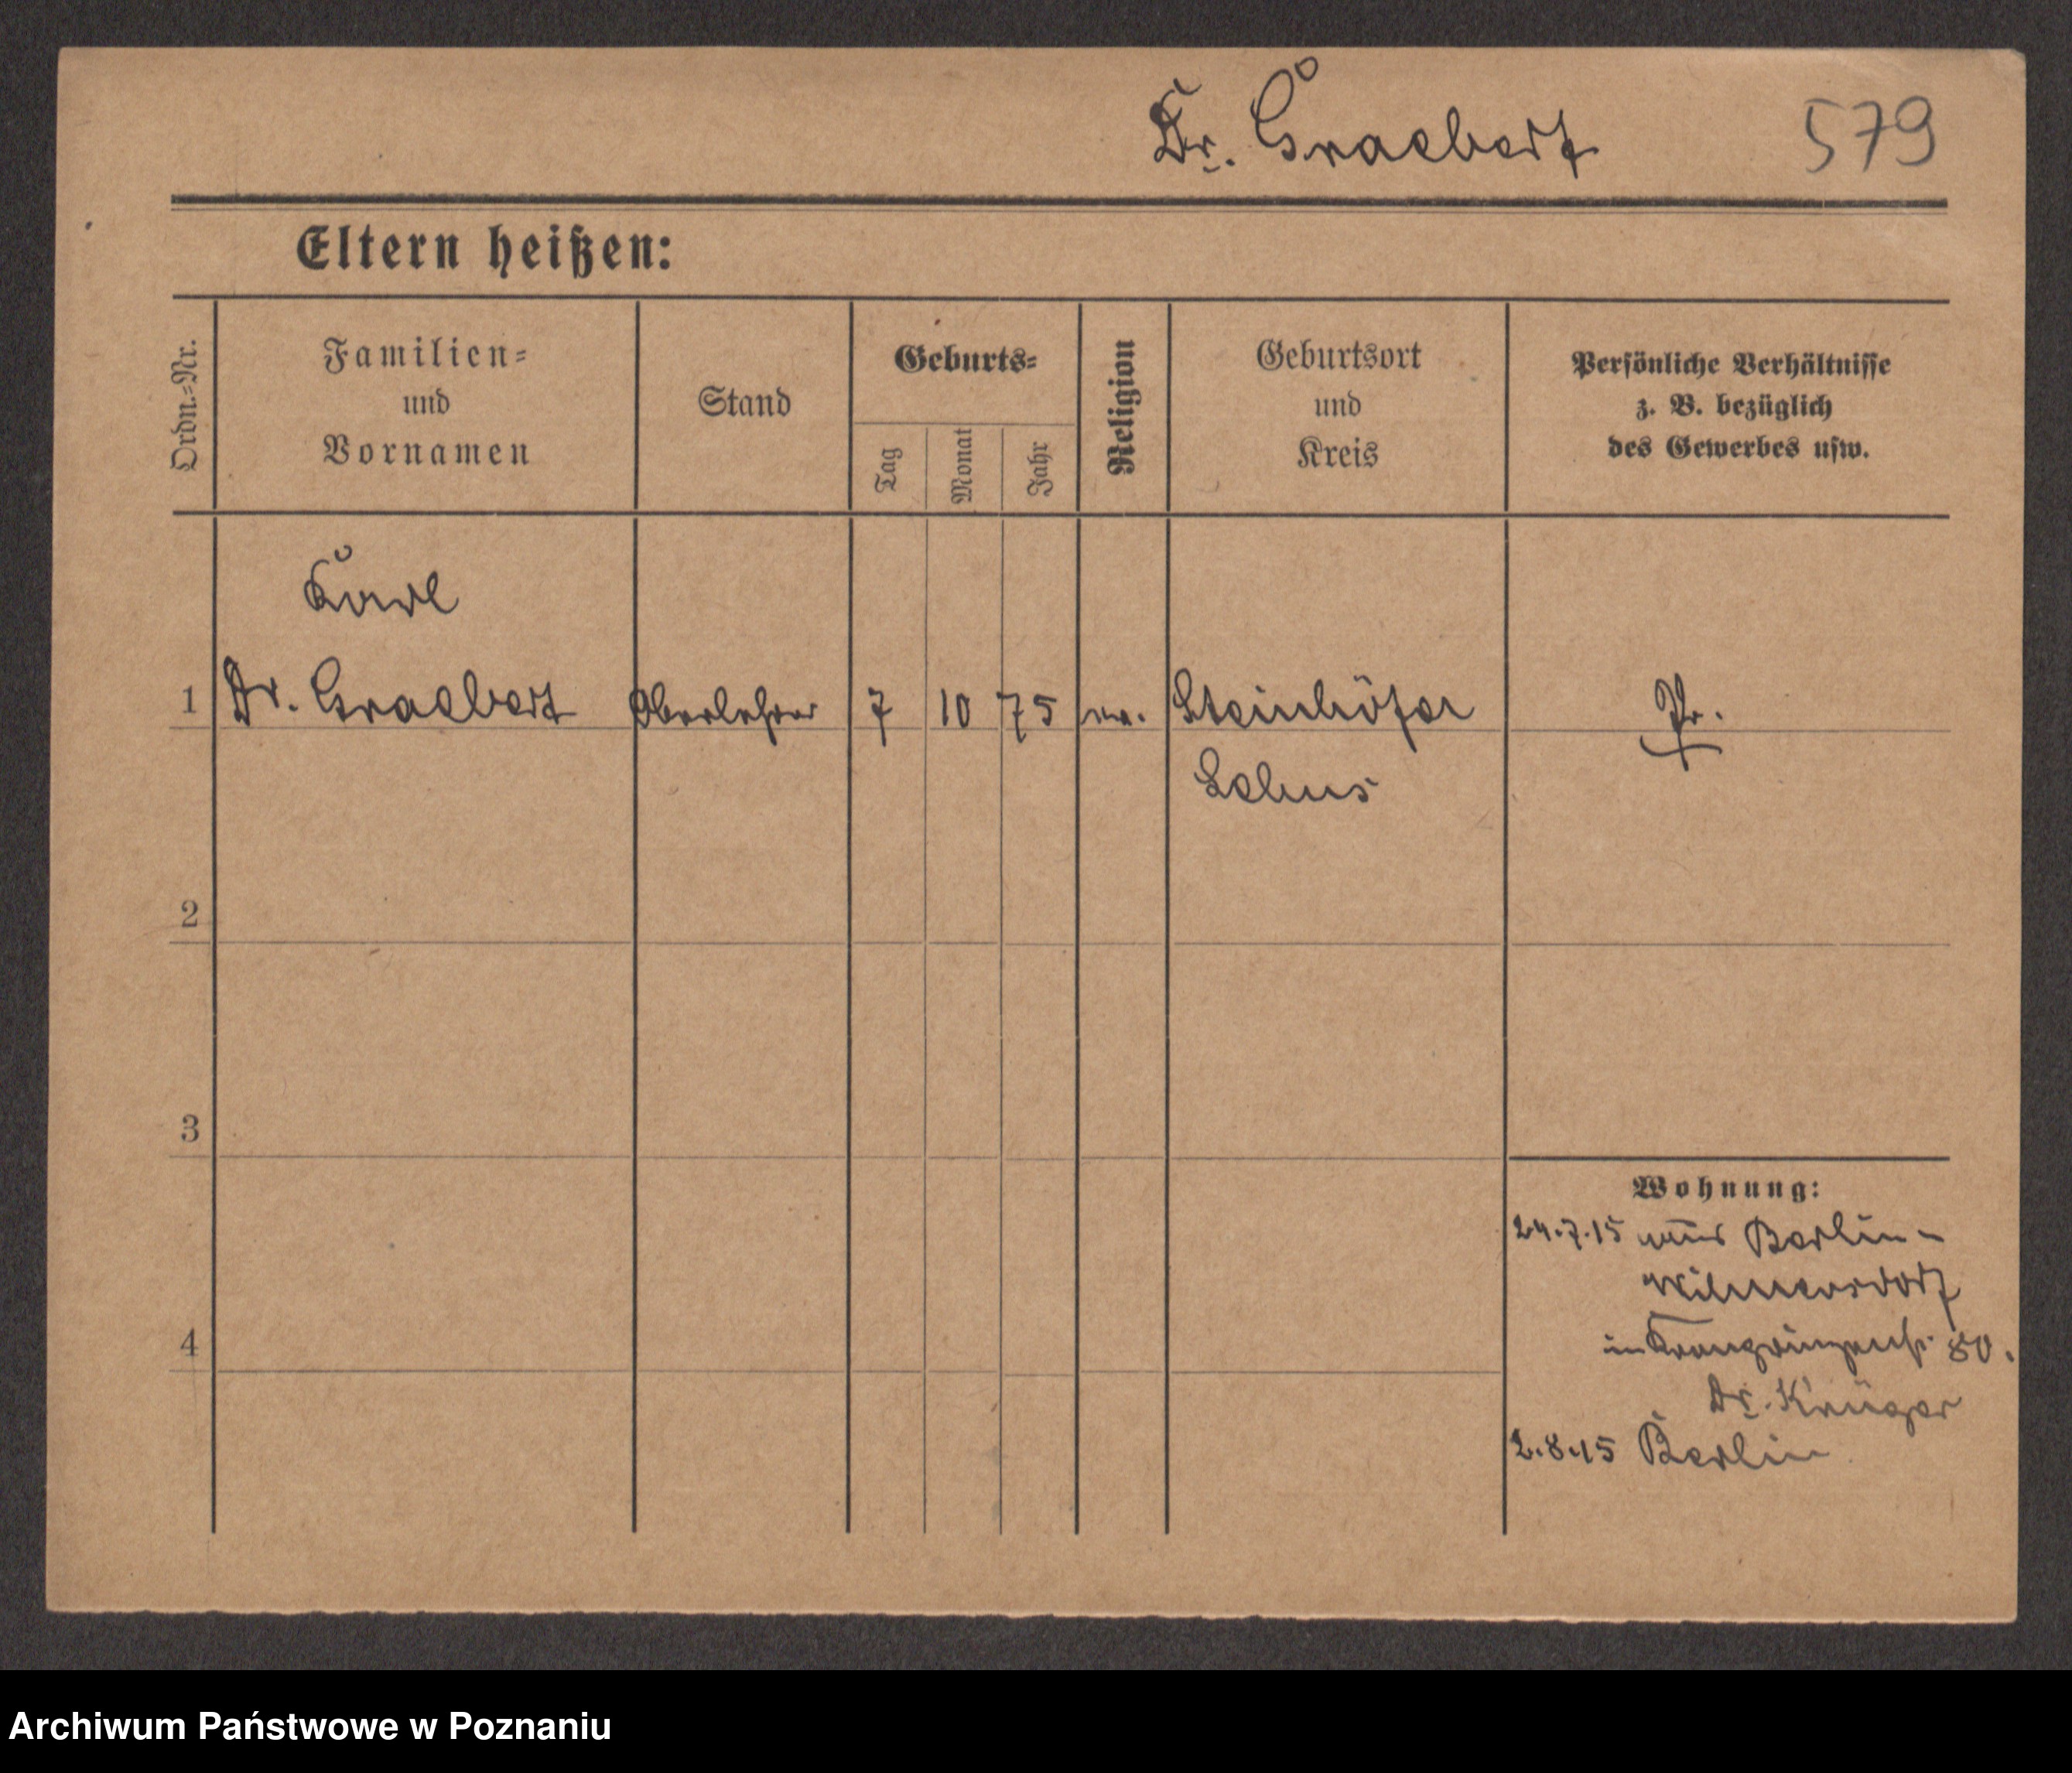 Dr. Graebert 579
Eltern heißen:
Ordn.=Nr.
Familien=
und
Vornamen
Stand
Geburts=
Tag
Monat
Jahr
Religion
Geburtsort
und
Kreis
Persönliche Verhältnisse
z. B. bezüglich
des Gewerbes usw.
Karl
1 Dr. Graebert Oberlehrer 7 10 75 ev. Steinhöfer Pr.
Lebus
2
3
4
Wohnung:
24.7.15 aus Berlin-
Wilmersdorf
in Kronprinzenstr. 80.
Dr. Krüger
2.8.15 Berlin
Archiwum Państwowe w Poznaniu